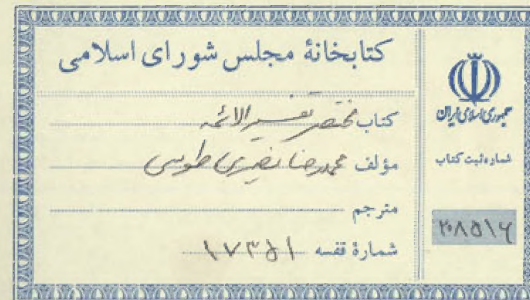 کتابخانهٔ مجلس شورای اسلامی
کتاب مختصر تفسیر الائمه
مؤلف محمدرضا نصیری طوسی
مترجم
شمارهٔ قفسه ۱۷۳۵۱
جمهوری اسلامی ایران
شماره ثبت کتاب
۲۰۸۵۱۶